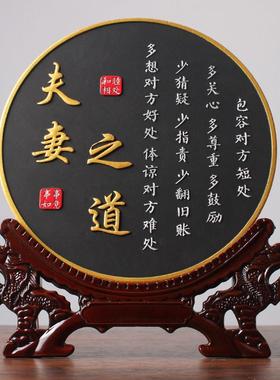 夫妻
之道
和睦相处
事事如意
多想对方好处 体谅对方难处
少猜疑 少指责 少翻旧账
多关心 多尊重 多鼓励
包容对方短处